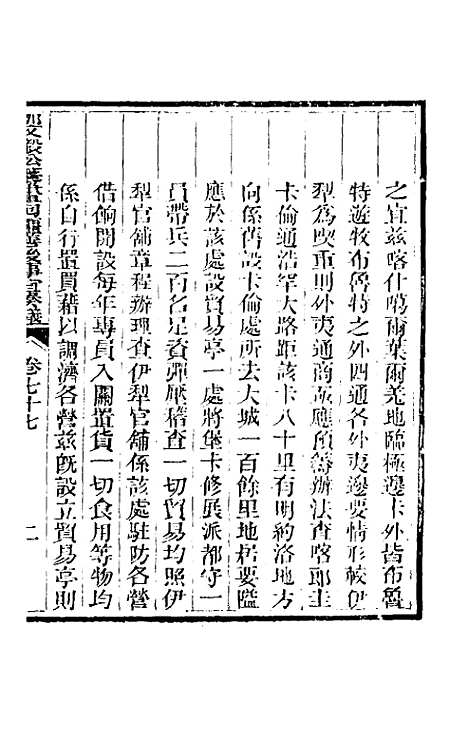 之宜兹喀什噶爾葉爾羌地臨極邊卡外皆布魯
特遊牧布魯特之外四通各外夷邊要情形較伊
犁為喫重則外夷通商城應預籌辦法查喀郎圭
卡倫通浩罕大路距該卡八十里有明約洛地方
向係舊設卡倫處所去大城一百餘里地居要隘
應於該處設貿易亭一處將堡卡修展派都守一
員帶兵二百名足資彈壓稽查一切貿易均照伊
犁官舖章程辦理查伊犁官舖係該處駐防各營
借餉開設每年專員入關置貨一切食用等物均
係自行置買藉以調濟各營兹既設立貿易亭則
那文毅公籌畫回疆善後事宜奏議 卷七十七 二